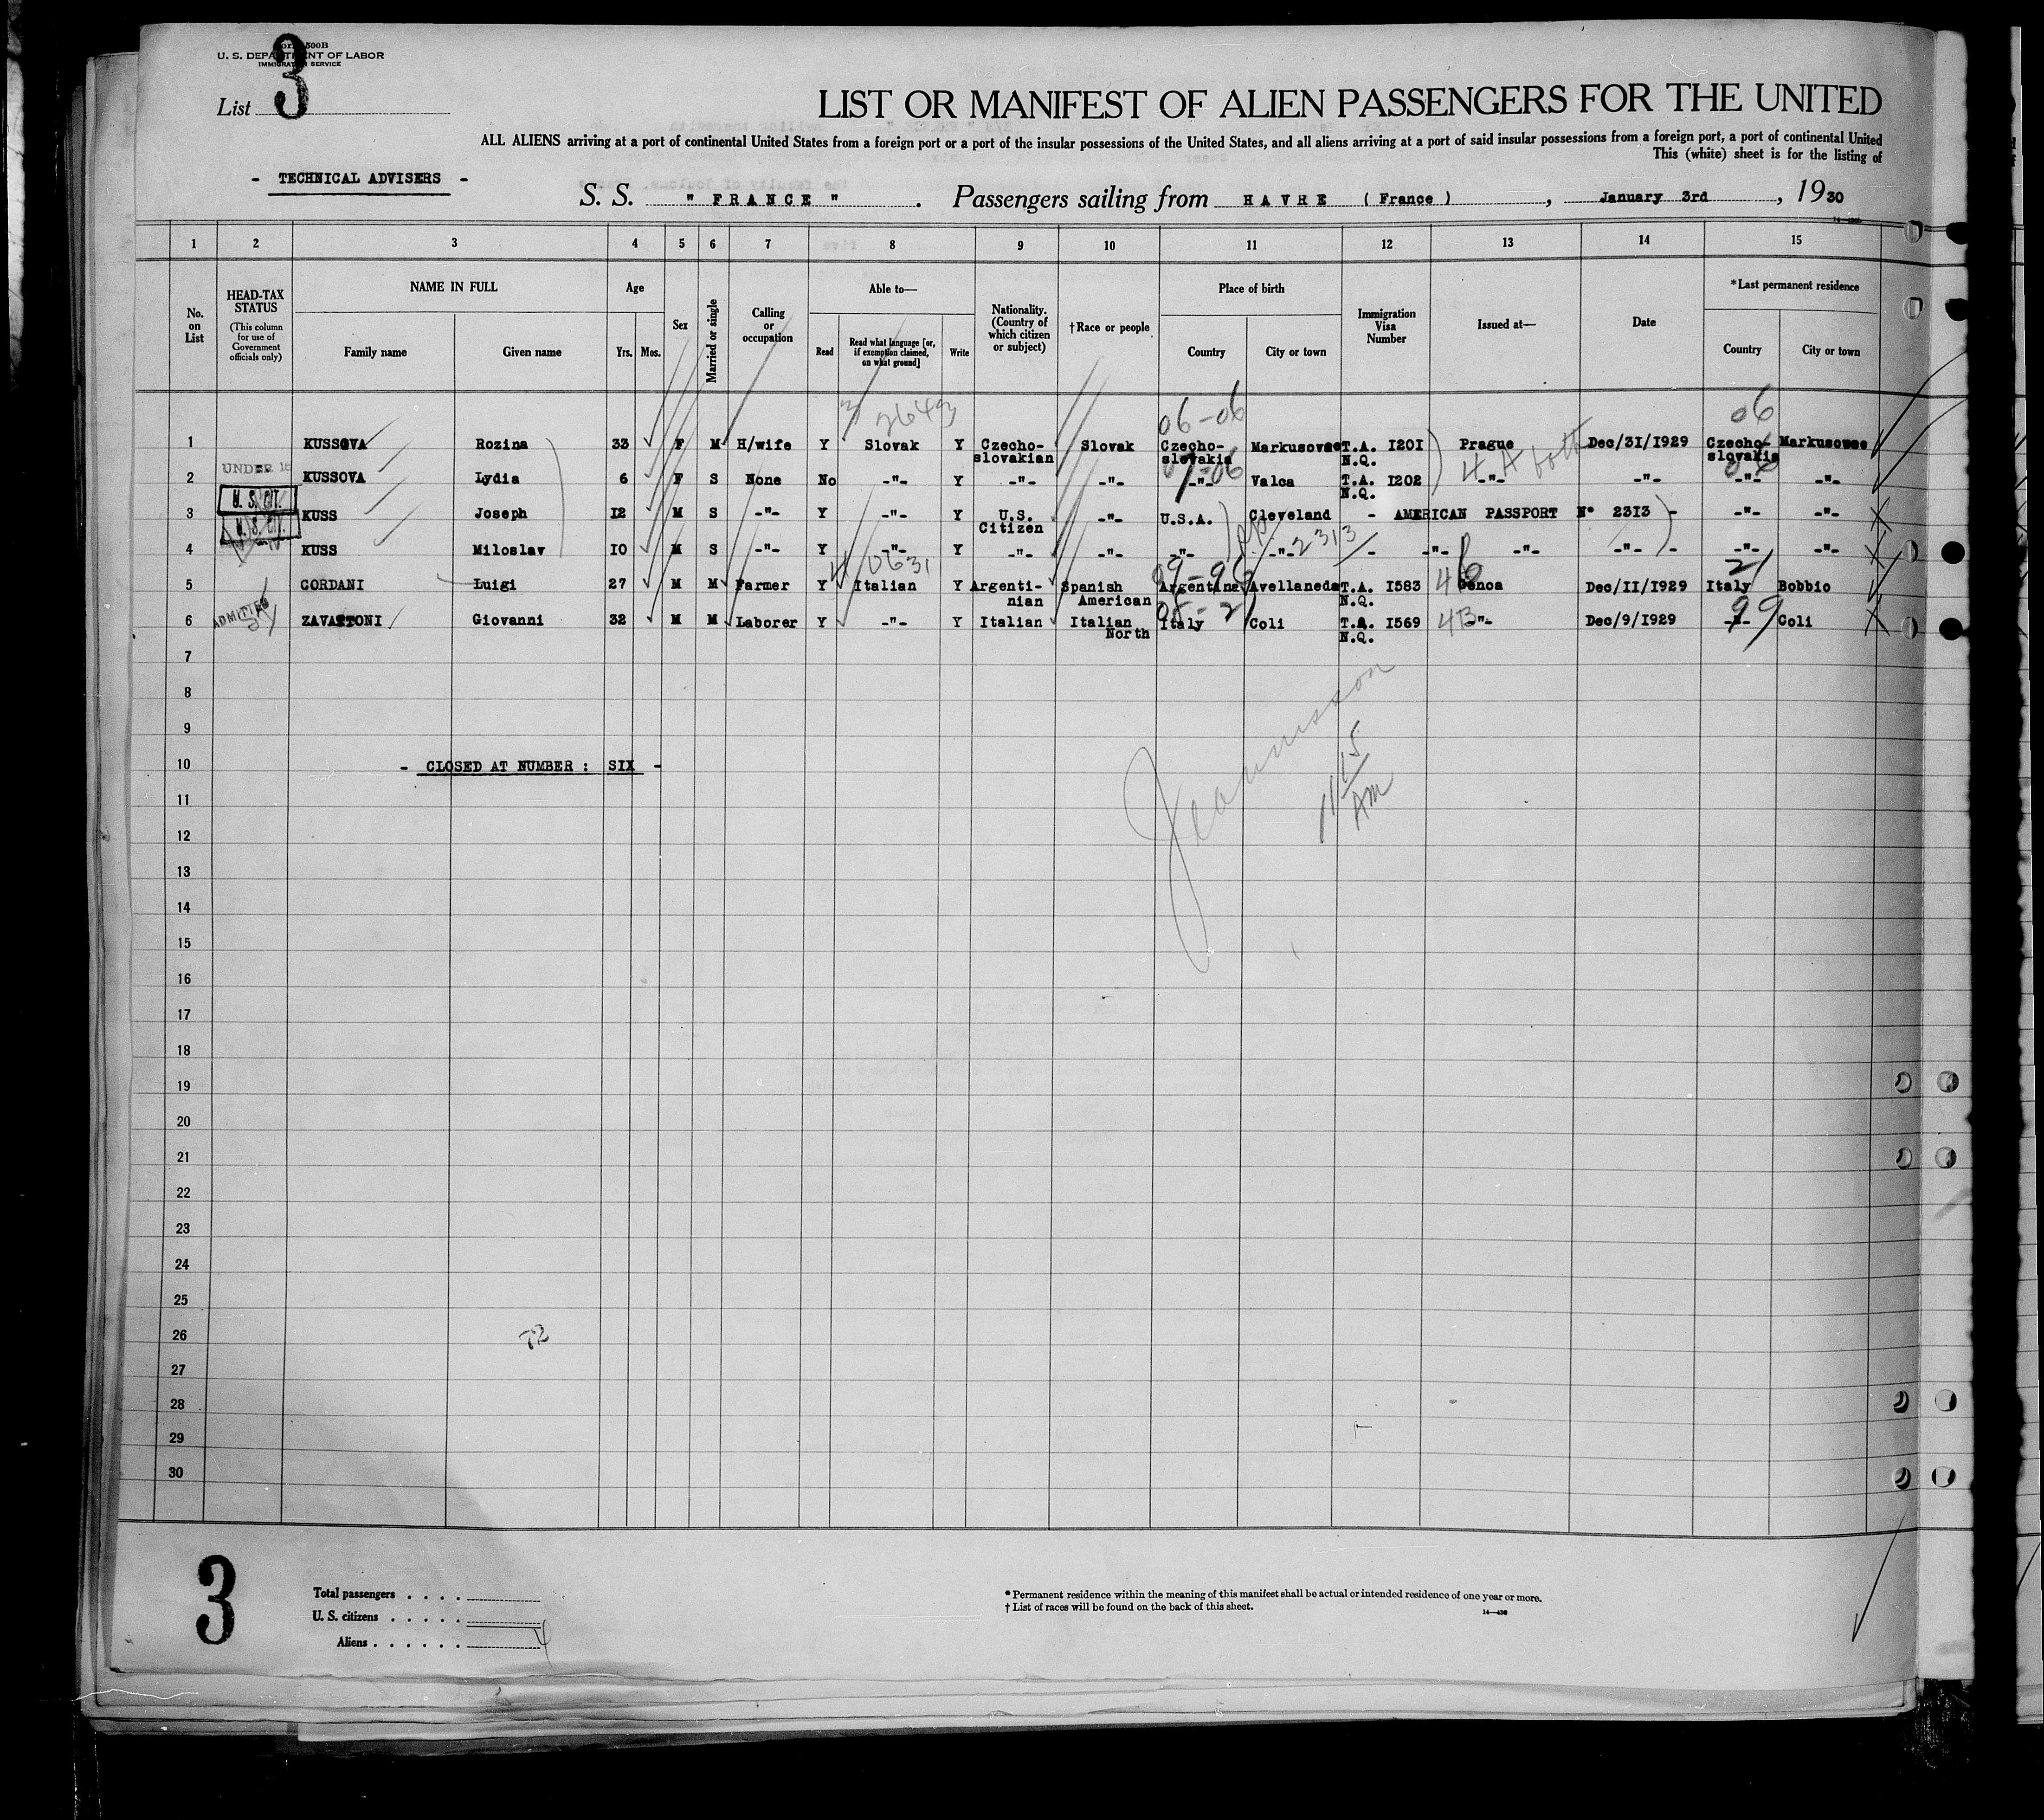 Form 500B
U. S. DEPARTMENT OF LABOR
IMMIGRATION SERVICE
List 3
LIST OR MANIFEST OF ALIEN PASSENGERS FOR THE UNITED
ALL ALIENS arriving at a port of continental United States from a foreign port or a port of the insular possessions of the United States, and all aliens arriving at a port of said insular possessions from a foreign port, a port of continental United
This (white) sheet is for the listing of
- TECHNICAL ADVISERS -
S. S. " FRANCE " . Passengers sailing from HAVRE ( France ) , January 3rd , 1930
1 2 3 4 5 6 7 8 9 10 11 12 13 14 15
No. on List
HEAD-TAX STATUS (This column for use of Government officials only)
NAME IN FULL
Family name Given name
Age
Yrs. Mos.
Sex
Married or single
Calling or occupation
Able to—
Read
Read what language [or, if exemption claimed, on what ground]
Write
Nationality. (Country of which citizen or subject)
†Race or people
Place of birth
Country City or town
Immigration Visa Number
Issued at—
Date
*Last permanent residence
Country City or town
06-06 06
1 KUSSOVA Rozina 33 F M H/wife Y Slovak Y Czecho-slovakian Slovak Czecho-slovakia Markusovce T.A. 1201 N.Q. Prague Dec/31/1929 Czecho-slovakia Markusovce
UNDER 16
2 KUSSOVA Lydia 6 F S None No -"- Y -"- -"- -"- Valca T.A. 1202 N.Q. -"- -"- -"- -"-
U. S. CIT.
3 KUSS Joseph 12 M S -"- Y -"- Y U.S. Citizen -"- U.S.A. Cleveland - AMERICAN PASSPORT N° 2313 - -"- -"-
U. S. CIT.
4 KUSS Miloslav 10 M S -"- Y -"- Y -"- -"- -"- -"- 2313 - -"- -"- -"- - -"- -"-
5 GORDANI Luigi 27 M M Farmer Y Italian Y Argenti-nian Spanish American Argentina Avellaneda T.A. 1583 N.Q. Genoa Dec/11/1929 Italy Bobbio
ADMITTED
6 ZAVATTONI Giovanni 32 M M Laborer Y -"- Y Italian Italian North Italy Coli T.A. 1569 N.Q. -"- Dec/9/1929 -"- Coli
7
8
9
10 - CLOSED AT NUMBER : SIX -
11
12
13
14
15
16
17
18
19
20
21
22
23
24
25
26
27
28
29
30
11 15 AM
72
3
Total passengers . . . .
U. S. citizens . . . . .
Aliens . . . . . . 4
* Permanent residence within the meaning of this manifest shall be actual or intended residence of one year or more.
† List of races will be found on the back of this sheet.
14—430